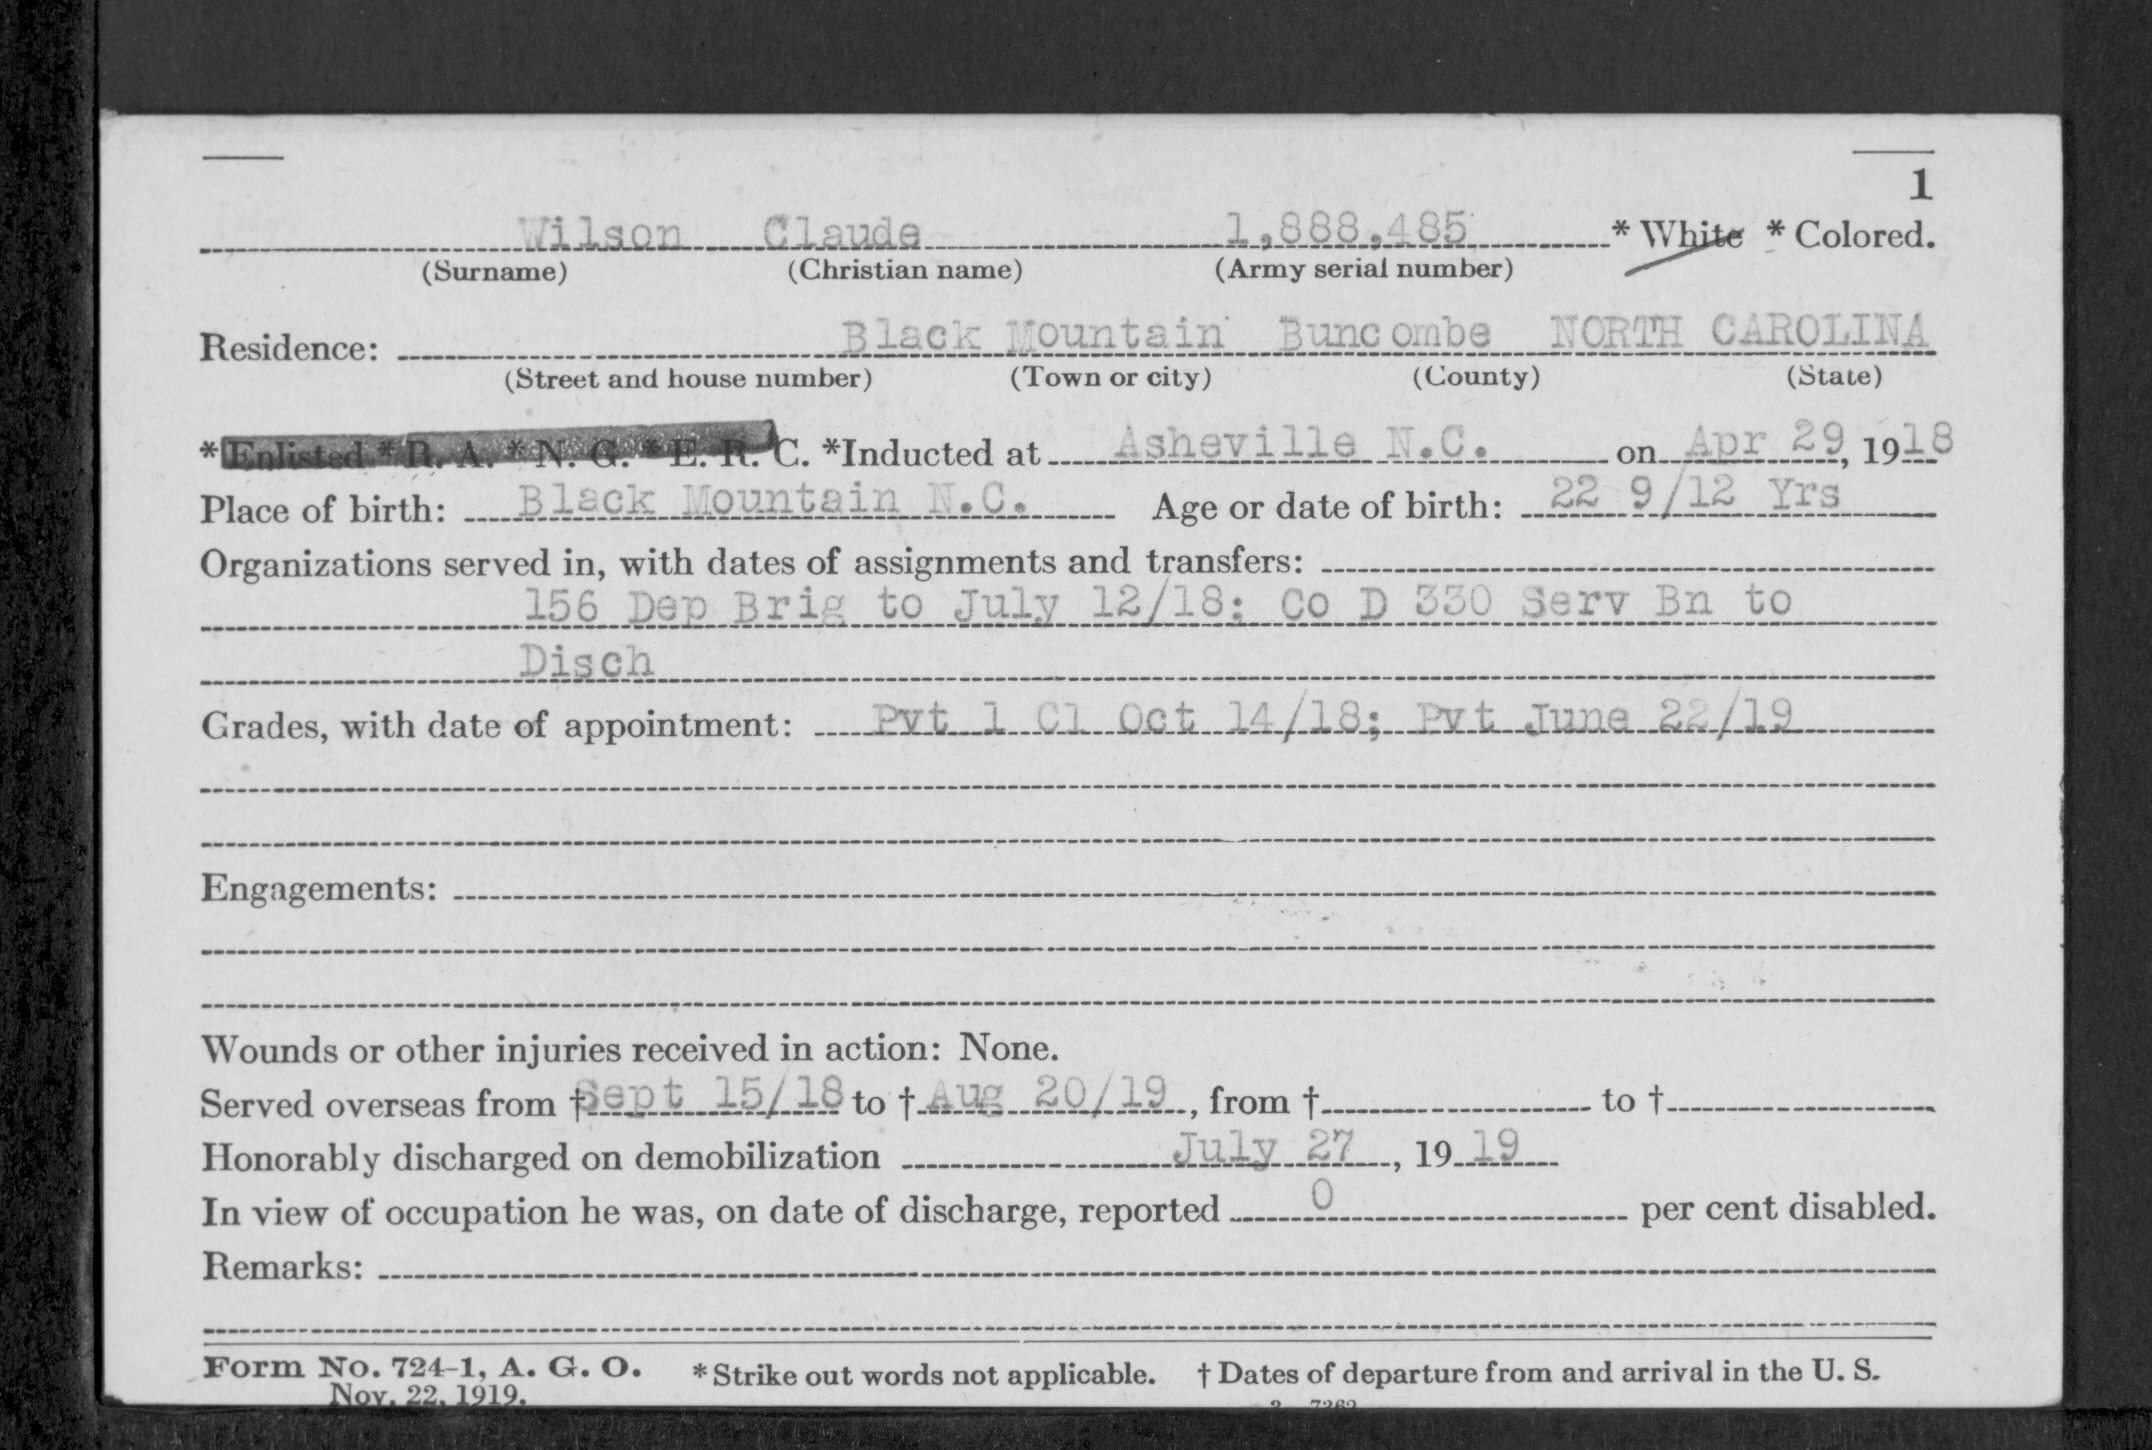 1
Wilson Claude 1,888,485 * White * Colored.
(Surname) (Christian name) (Army serial number)
Residence: Black Mountain Buncombe NORTH CAROLINA
(Street and house number) (Town or city) (County) (State)
*Enlisted *R. A. *N. G. *E. R. C. *Inducted at Asheville N.C. on Apr 29, 1918
Place of birth: Black Mountain N.C. Age or date of birth: 22 9/12 Yrs
Organizations served in, with dates of assignments and transfers:
156 Dep Brig to July 12/18; Co D 330 Serv Bn to
Disch
Grades, with date of appointment: Pvt 1 Cl Oct 14/18; Pvt June 22/19
Engagements:
Wounds or other injuries received in action: None.
Served overseas from † Sept 15/18 to † Aug 20/19, from † to †
Honorably discharged on demobilization July 27, 19 19
In view of occupation he was, on date of discharge, reported 0 per cent disabled.
Remarks:
Form No. 724-1, A. G. O. *Strike out words not applicable. † Dates of departure from and arrival in the U. S.
Nov. 22, 1919.